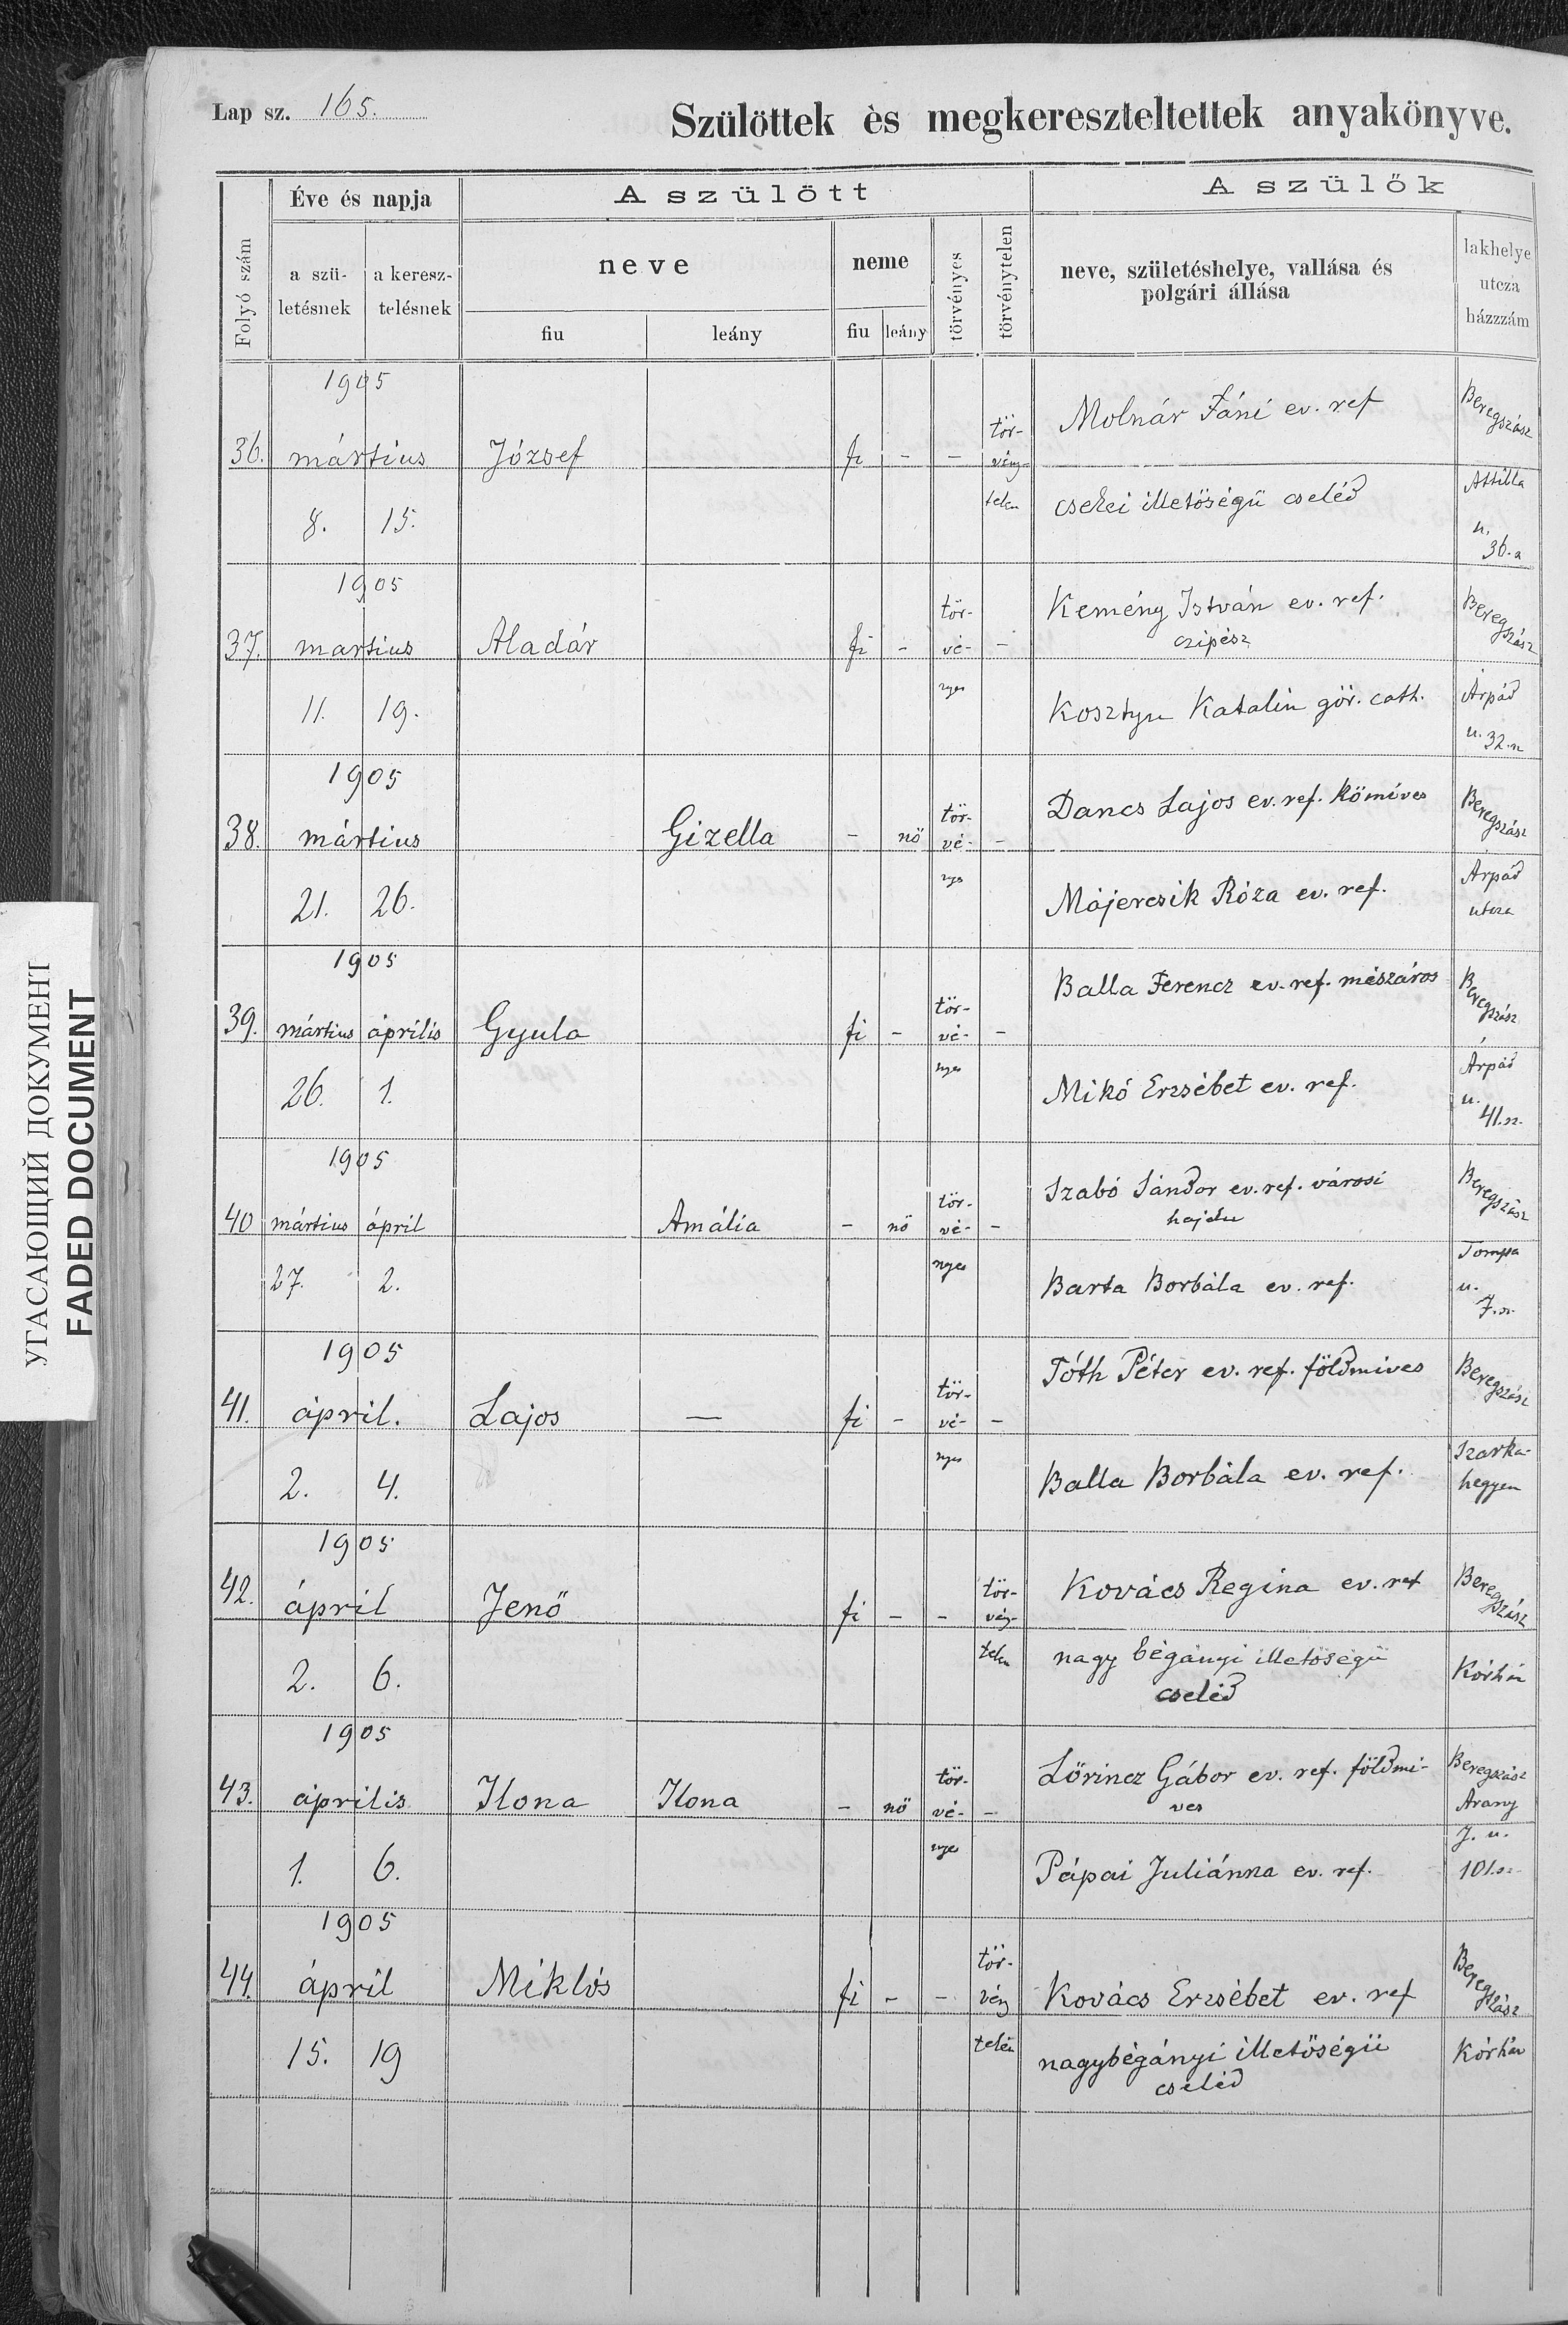 Lap sz. 165.
Szülöttek ès megkereszteltettek anyakönyve.
Folyó szám
Éve és napja
a szü-
letésnek
a keresz-
telésnek
A szülött
neve
fiu
leány
neme
fiu
leány
törvényes
törvénytelen
A szülők
neve, születéshelye, vallása és
polgári állása
lakhelye
utcza
házzzám
1905
36. mártius József fi - - tör-
vény-
telen
8. 15.
Molnár Fáni ev. ref
csekei illetőségű cseléd
Beregszász
Attilla
u.
36. a
1905
37. martius Aladár fi - tör-
vé- -
nyes
11. 19.
Kemény István ev. ref.
czipész
Kosztyu Katalin gör. cath.
Beregszász
Árpád
u. 32. n
1905
38. mártius Gizella - nő tör-
vé- -
nyes
21. 26.
Dancs Lajos ev. ref. kőmíves
Májercsik Róza ev. ref.
Beregszász
Árpád
utcza
1905
39. mártius április Gyula fi - tör-
vé- -
nyes
26. 1.
Balla Ferencz ev. ref. mészáros
Mikó Erzsébet ev. ref.
Beregszász
Árpád
u.
41. n.
1905
40 mártius ápril Amália - nő tör-
vé- -
nyes
27. 2.
Szabó Sándor ev. ref. városi
hajdu
Barta Borbála ev. ref.
Beregszász
Tompa
u.
7. n.
1905
41. ápril. Lajos — fi - tör-
vé- -
nyes
2. 4.
Tóth Péter ev. ref. földmives
Balla Borbála ev. ref.
Beregszász
Szarka-
hegyen
1905
42. ápril Jenő fi - - tör-
vény-
telen
2. 6.
Kovács Regina ev. ref
nagy bégányi illetőségű
cseléd
Beregszász
Kórház
1905
43. április Ilona Ilona - nő tör-
vé- -
nyes
1. 6.
Lőrincz Gábor ev. ref. földmi-
ves
Pápai Juliánna ev. ref.
Beregszász
Arany
J. u.
101. n.
1905
44. ápril Miklós fi - - tör-
vény
telen
15. 19
Kovács Erzsébet ev. ref
nagybégányi illetőségü
cseléd
Beregszász
Kórház
УГАСАЮЩИЙ ДОКУМЕНТ
FADED DOCUMENT